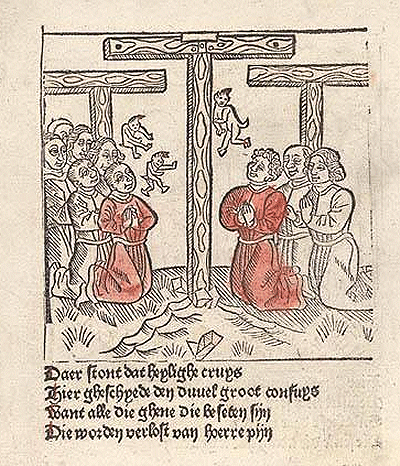 Daer stont dat heylighe cruys
Hier gheschyede den duuel groot confuys
Want alle die ghene die beseten sijn
Die worden verlost van hoerre pijn